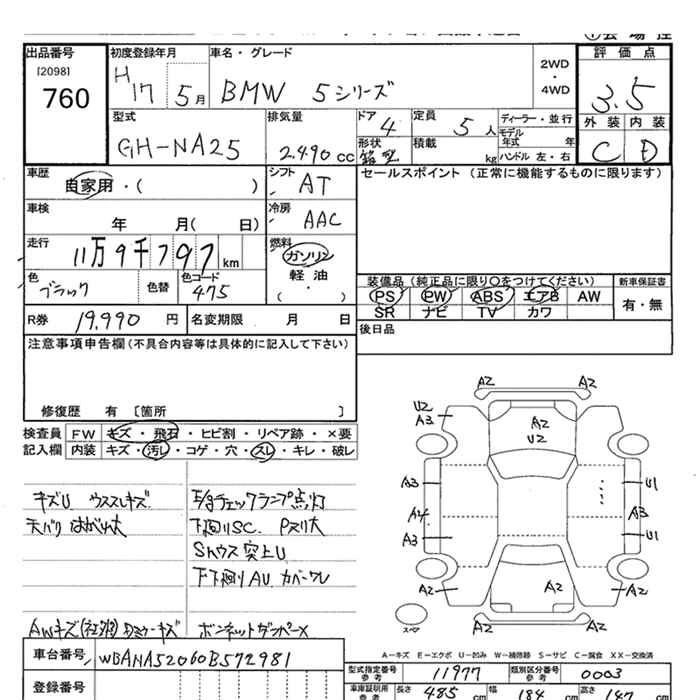 出品番号 初度登録年月 車名・グレード 2WD・4WD 評価点
[2098]
760 H17 5月 BMW 5シリーズ 3.5
型式 排気量 ドア 定員 ディーラー・並行 外装 内装
GH-NA25 2.490 cc 4 5人 モデル年式 年 C D
形状 積載 kg ハンドル 左・右
車歴 シフト セールスポイント (正常に機能するものに限ります)
自家用・( ) AT
車検 冷房
年 月( 日) AAC
走行 燃料
11万9千797km ガソリン
軽油
( ・ )
色 色替 色コード
ブラック 475
装備品 (純正品に限り〇をつけてください) 新車保証書
PS PW ABS エアB AW 有・無
SR ナビ TV カワ
R券 19,990 円 名変期限 月 日 後日品
注意事項申告欄 (不具合内容等は具体的に記入して下さい)
修復歴 有 [箇所 ]
検査員 FW キズ・飛石・ヒビ割・リペア跡・×要
記入欄 内装 キズ・汚し・コゲ・穴・スレ・キレ・破レ
キズU ウススレキズ
天バリ はがれ大
E/gチェックランプ点灯
下廻りSC
突上U
下下廻りAU カバーワレ
AWキズ(社外)
ボンネットダンパー×
A2 A2
U2
A3
A2
U2
A3 U1
A4 A3
A3 U1
A2 A2 A2
A2 A2
スペア
A-キズ E-エクボ U-凹み W-補修跡 S-サビ C-腐食 XX-交換済
車台番号 WBANA52060B572981
登録番号
型式指定番号 参考 11977 類別区分番号 参考 0003
車庫証明用 参考 長さ 485 cm 幅 184 cm 高さ 147 cm